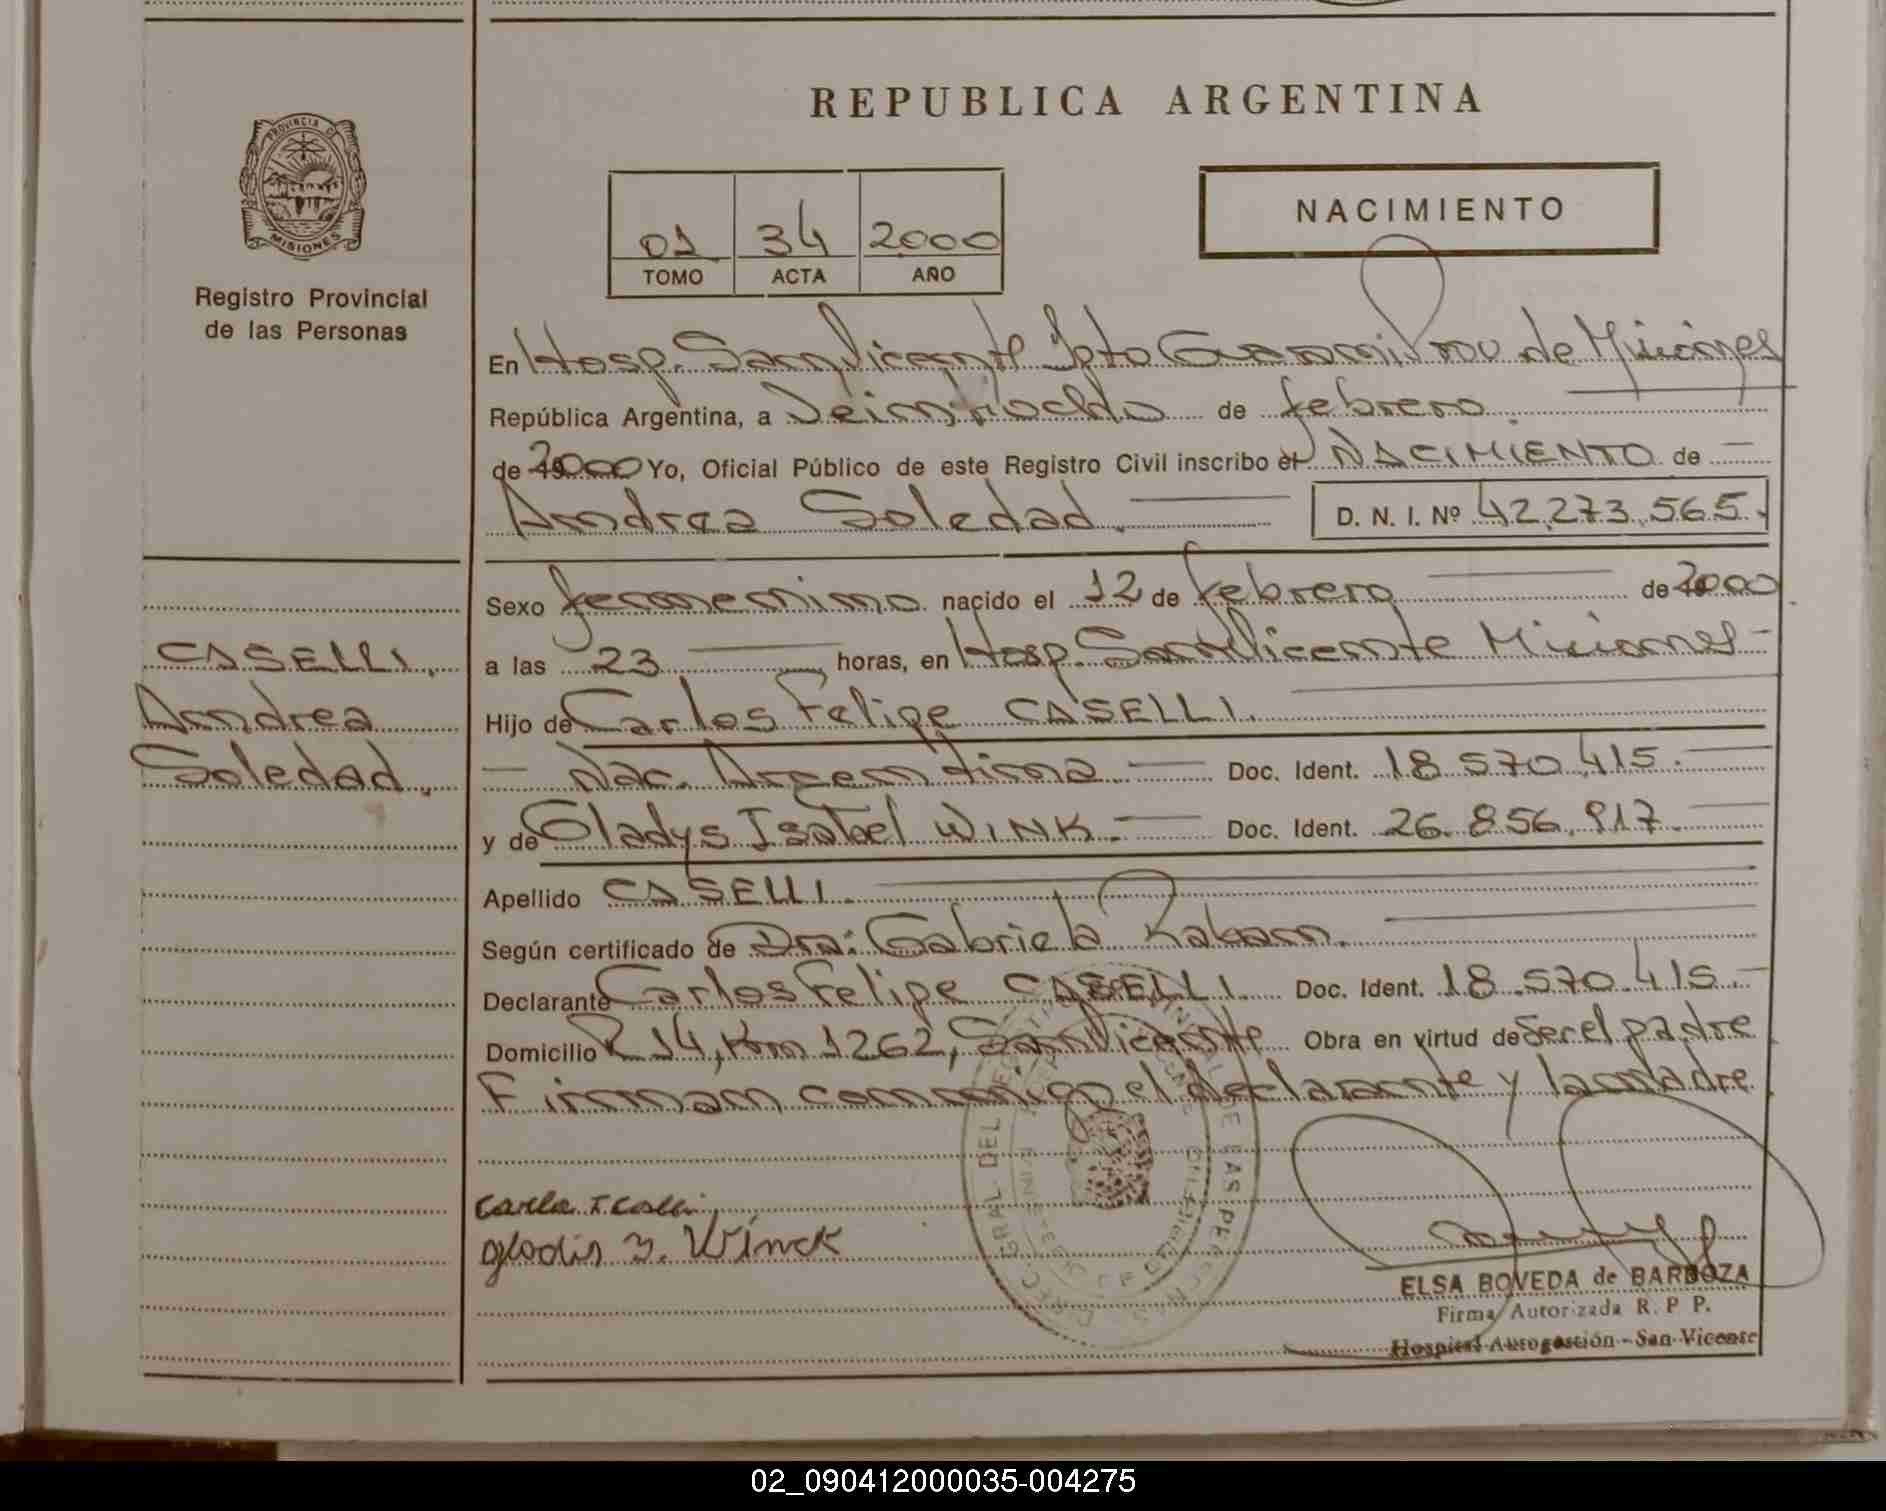 REPUBLICA ARGENTINA
PROVINCIA DE
MISIONES
Registro Provincial
de las Personas
NACIMIENTO
01 34 2000
TOMO ACTA AÑO
En Hosp. San Vicente Dpto Guaraní Prov de Misiones
República Argentina, a Veintiocho de febrero
de 2000 Yo, Oficial Público de este Registro Civil inscribo el NACIMIENTO de
Andrea Soledad. D. N. I. Nº 42.273.565.
Sexo femenino nacido el 12 de febrero de 2000
a las 23 horas, en Hosp. San Vicente Misiones
Hijo de Carlos Felipe CASELLI.
Nac. Argentina Doc. Ident. 18.570.415.
y de Gladys Isabel WINK. Doc. Ident. 26.856.917.
Apellido CASELLI.
Según certificado de Dra: Gabriela
Declarante Carlos Felipe CASELLI. Doc. Ident. 18.570.415.
Domicilio R 14, Km 1262, San Vicente Obra en virtud de ser el padre
Firman conmigo el declarante y la madre.
CASELLI,
Andrea
Soledad.
Winck
ELSA BOVEDA de BARBOZA
Firma Autorizada R. P P.
Hospital Autogestión - San Vicente
02_090412000035-004275